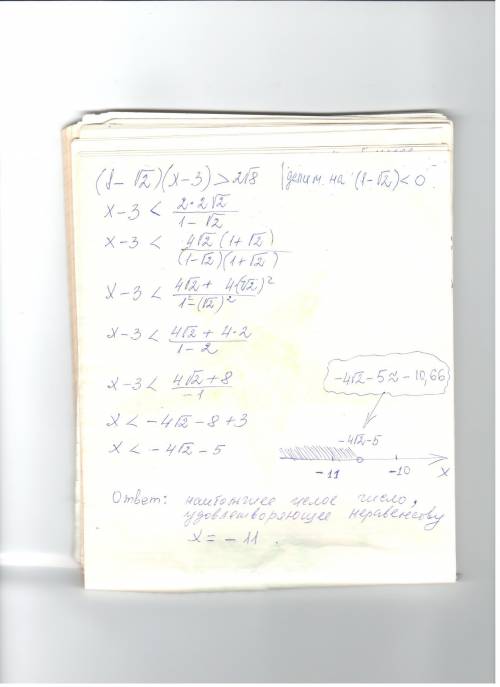 (1-√2)(x-3)>2√8 | делим на (1-√2)<0
x-3 < 2·2√2/(1-√2)
x-3 < 4√2(1+√2)/((1-√2)(1+√2))
x-3 < (4√2+4(√2)²)/(1²-(√2)²)
x-3 < (4√2+4·2)/(1-2)
x-3 < (4√2+8)/(-1)
-4√2-5≈-10,66
x < -4√2-8+3
x < -4√2-5
-4√2-5
-11 -10 x
Ответ: наибольшее целое число,
удовлетворяющее неравенству
x=-11.